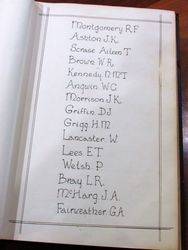 Montgomery R.F
Ashton J.K.
Scrase Aileen T
Brown W.R.
Kennedy N.M.T
Angwin W.G
Morrison J.K.
Griffin D.J.
Grigg H.M
Lancaster W.
Lees E.T.
Welsh P.
Bray L.R.
McHarg J.A.
Fairweather G.A